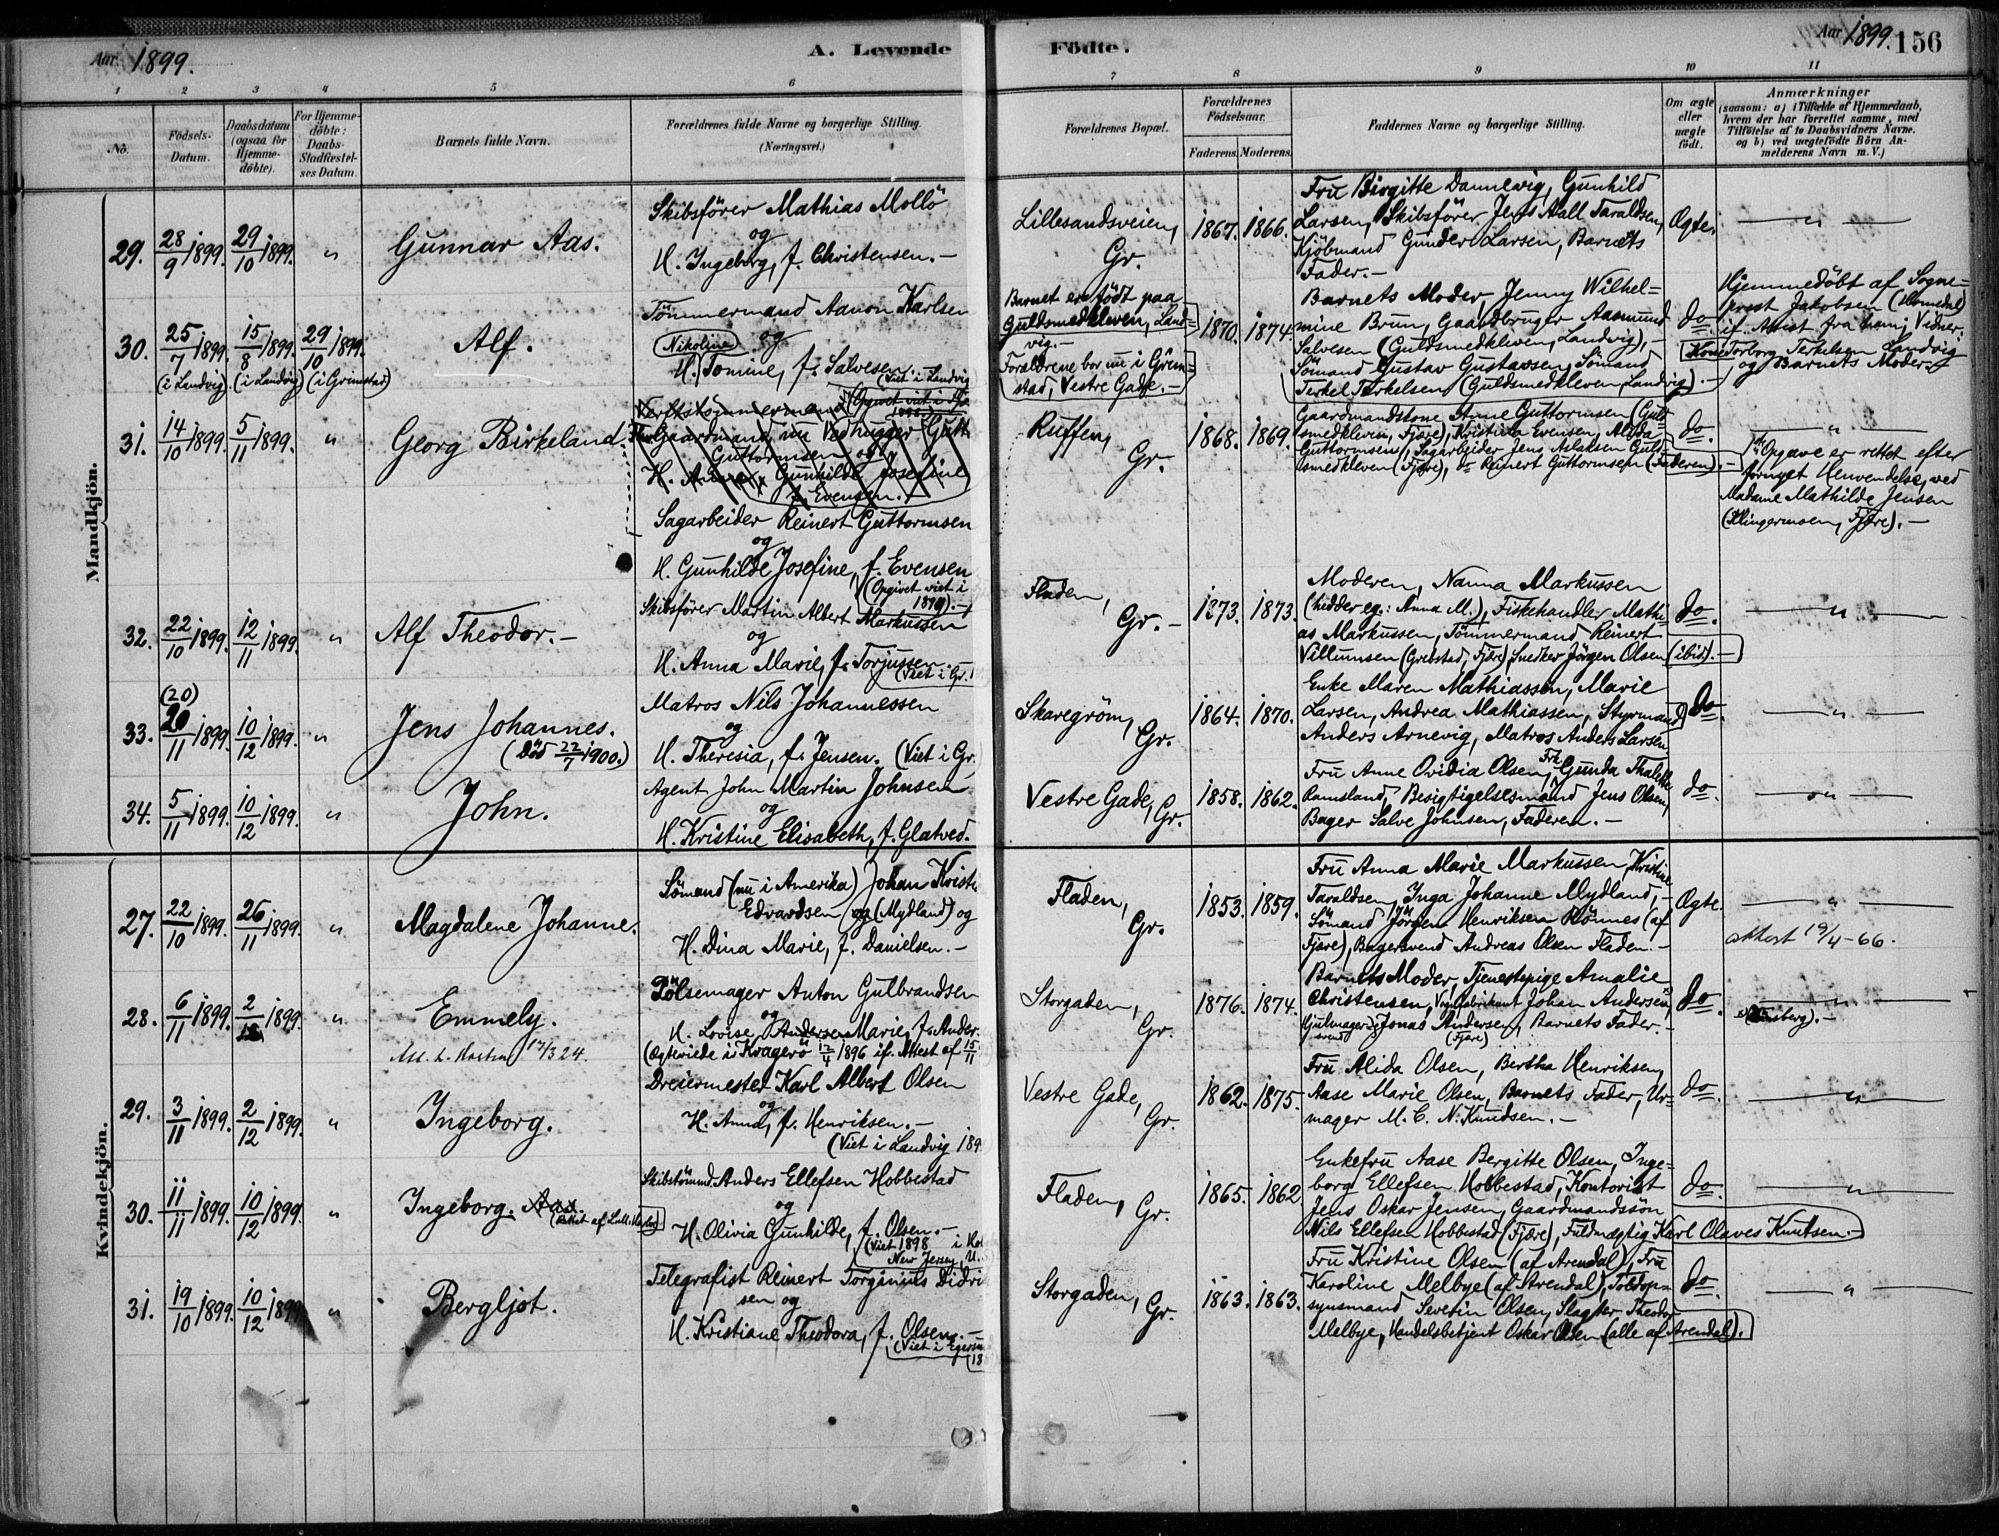 Aar 1899.
A. Levende
Födte.
Aar 1899.
156
1 2 3 4 5 6 7 8 9 10 11
No.
Födsels-Datum.
Daabsdatum (ogsaa for Hjemme-döbte).
For Hjemme-döbte: Daabs-Stadfæstel-ses Datum.
Barnets fulde Navn.
Forældrenes fulde Navne og borgerlige Stilling.
(Næringsvei.)
Forældrenes Bopæl.
Forældrenes Födselsaar.
Faderens. Moderens.
Faddernes Navne og borgerlige Stilling.
Om ægte eller uægte födt.
Anmærkninger
(saasom: a) i Tilfælde af Hjemmedaab,
hvem der har forrettet samme, med
Tilföielse af to Daabsvidners Navne.
og b) ved uægtefödte Börn An-
melderens Navn m. V.)
Mandkjön.
29. 28/9 1899. 29/10 1899. " Gunnar Aas.
Skibsförer Mathias Mollö
og
H. Ingeborg, f. Christensen.-
Lillesandsveien,
Gr.
1867. 1866.
Fru Birgitte Dannevig, Gunhild
Larsen, Skibsfører Jens Aall Taraldsen,
Kjöbmand Gunder Larsen, Barnets
Fader.-
Ægte. "
30. 25/7 1899. 15/8 1899. 29/10 1899.
(i Landvig) (i Landvig) (i Grimstad)
Alf.
Tömmermand Aanon Karlsen
Nikoline og
H. Tomine, f. Salvesen.-
(Viet i Landvig
Barnet er födt paa
Guldsmedkleven, Land-
vig.-
Forældrene bor nu i Grim-
stad, Vestre Gade.-
1870. 1874.
Barnets Moder, Jenny Wilhel-
mine Brun, Gaardbruger Aasmund
Salvesen (Guldsmedkleven, Landvig),-
Sömand Gustav Gustavsen, Sömand
Terkel Terkelsen (Guldsmedkleven, Landvig).-
do.
Hjemmedöbt af Sogne-
prest Jakobsen (Homedal)
if. Attest fra ham; Vidner:
Kone Torborg Terkelsen Landvig
og Barnets Moder.
31. 14/10 1899. 5/11 1899. " Georg Birkeland.
Gaardmand, nu Vedhugger
Guttormsen og
H. Gunhilde Josefine
f. Evensen.-
Sagarbeider Reinert Guttormsen
og
H. Gunhilde Josefine, f. Evensen
(Opgivet viet i
Ruffen,
Gr.
1868. 1869.
Gaardmandskone Anne Guttormsen (Guld-
smedkleven, Fjære), Kristina Evensen, Alvida
Guttormsen, Sagarbeider Jens Aslaksen Guld-
smedkleven (Fjære), do Reinert Guttormsen (Faderen).-
do. "
Opgave er rettet efter
fornyet Henvendelse, ved
Madame Mathilde Jensen
(Klingermoen, Fjære).-
32. 22/10 1899. 12/11 1899. " Alf Theodor.-
Skibsförer Martin Albert Markussen
og
H. Anna Marie, f. Torjussen.
(Viet i Gr.
Fladen,
Gr.-
1873. 1873.
Moderen, Nanna Markussen
(hedder eg.: Anna M.), Fiskehandler Mathi-
as Markussen, Tömmermand Reinert
Villumsen (Grebstad, Fjære), Snedker Jörgen Olsen (ibid).-
do. "
(20)
33. 20/11 1899. 10/12 1899. " Jens Johannes.
(Död 22/7 1900.)
Matros Nils Johannessen
og
H. Theresia, f. Jensen. (Viet i Gr.
Skaregröm,
Gr.
1864. 1870.
Enke Maren Mathiassen, Marie
Larsen, Andrea Mathiassen, Styrmand
Anders Arnevig, Matros Anders Larsen
do. "
34. 5/11 1899. 10/12 1899. " John.
Agent John Martin Johnsen
og
H. Kristine Elisabeth, f. Glatved.
Vestre Gade, Gr.
1858. 1862.
Fru Anne Ovidia Olsen, Fru Gunda Thalette
Ramsland, Besigtigelsesmand Jens Olsen,
Bager Salve Johnsen, Faderen.-
do. "
Kvindekjön.
27. 22/10 1899. 26/11 1899. " Magdalene Johanne.
Sömand (nu i Amerika) Johan Krist
Edvardsen (Mydland) og
H. Dina Marie, f. Danielsen.-
Fladen,
Gr.
1853. 1859.
Fru Anna Marie Markussen, Kristine
Taraldsen, Inga Johanne Mydland,-
Sömand Jörgen Henriksen Rönnes (af
Fjære), Bagersvend Andreas Olsen Fladen.-
Ægte. "
attest 19/4-66.
28. 6/11 1899. 2/12 1899. " Emmely.
17/3 24.
Pölsemager Anton Gulbrandsen
og
H. Lovise Marie, f. Ander.
(Ægteviede i Kragerö 12/4 1896 if. Attest af 15/11
Storgaden,
Gr.
1876. 1874.
Barnets Moder, Tjenestepige Amalie
Christensen, Vognfabrikant Johan Andersen,
Hjulmager-svend Jonas Andersen, Barnets Fader.-
(Fjære)
do. "
29. 3/11 1899. 2/12 1899. " Ingeborg.
Dreiermester Karl Albert Olsen
og
H. Anna, f. Henriksen.-
(Viet i Landvig 189
Vestre Gade,
Gr.
1862. 1875.
Fru Alida Olsen, Bertha Henriksen,
Aase Marie Olsen, Barnets Fader, Ur-
mager M. C. N. Knudsen.-
do. "
30. 11/11 1899. 10/12 1899. " Ingeborg. Aas.
Skibstömmd. Anders Ellefsen Hobbestad
og
H. Olivia Gunhilde, f. Olsen.-
(Viet 1898 i Ho
New Jersey, U.
Fladen, Gr.
1865. 1862
Enkefru Aase Bergitte Olsen, Inge-
borg Ellefsen Hobbestad, Kontorist
Jens Oskar Jensen, Gaardmandssön
Nils Ellefsen Hobbestad (Fjære), Fuldmægtig Karl Olaves Knutsen.-
do. "
31. 19/10 1899. 10/12 1899. " Bergljot.
Telegrafist Reinert Torginius Didri
sen og
H. Kristiane Theodora, f. Olsen.-
(Viet i Egersu
18
Storgaden, Gr.
1863. 1863.
Fru Kristine Olsen (af Arendal), Fru
Karoline Melbye (af Arendal), Toldop-
synsmand Severin Olsen, Slagter Theodor
Melbye, Handelsbetjent Oskar Olsen (alle af Arendal).
do. "